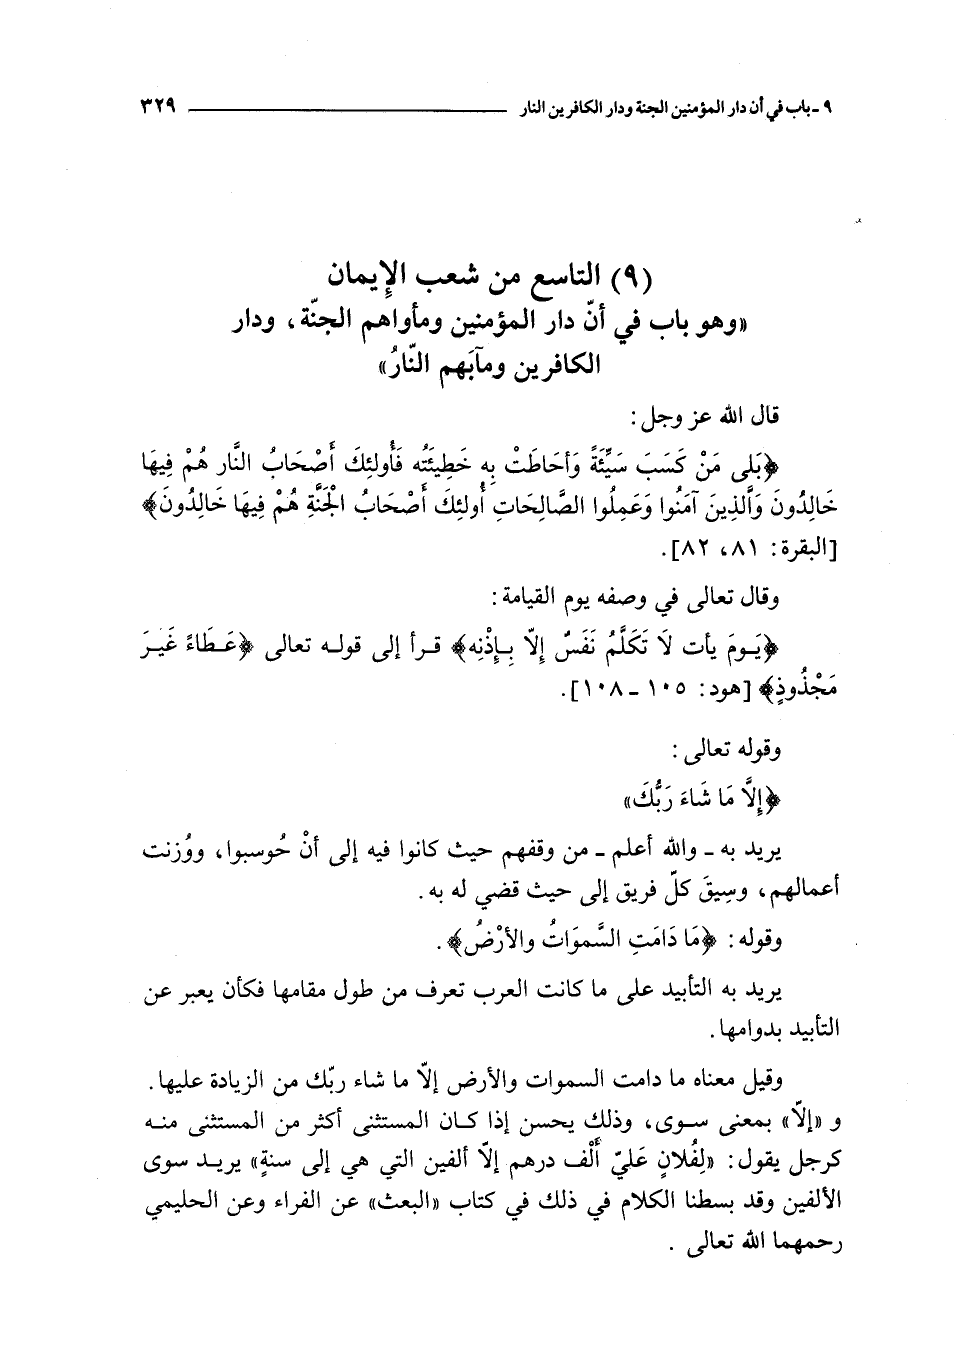 ٩ - باب في أن دار المؤمنين الجنة ودار الكافرين النار ٣٢٩
(٩) التاسع من شعب الإيمان
«وهو باب في أنّ دار المؤمنين ومأواهم الجنّة، ودار
الكافرين ومآبَهم النّارُ»
قال الله عز وجل:
﴿بَلى مَنْ كَسَبَ سَيِّئَةً وَأحَاطَتْ بِهِ خَطِيئَتُه فَأُولئِكَ أَصْحَابُ النَّار هُمْ فِيهَا
خَالِدُونَ وَالَّذِينَ آمَنُوا وَعَمِلُوا الصَّالِحَاتِ أُولئِكَ أَصْحَابُ الْجَنَّةِ هُمْ فِيهَا خَالِدُونَ﴾
[البقرة: ٨١، ٨٢].
وقال تعالى في وصفه يوم القيامة:
﴿يَـومَ يأت لَا تَكَلَّمُ نَفَسٌ إِلّا بِـإِذْنِه﴾ قـرأ إلى قولـه تعالى ﴿عَـطَاءً غَيـرَ
مَجْذُوذٍ﴾ [هود: ١٠٥ - ١٠٨].
وقوله تعالى:
﴿إِلَّا مَا شَاءَ رَبُّكَ»
يريد به - والله أعلم - من وقفهم حيث كانوا فيه إلى أنْ حُوسبوا، ووُزنت
أعمالهم، وسِيقَ كلّ فريق إلى حيث قضي له به.
وقوله: ﴿مَا دَامَتِ السَّموَاتُ والأرْضُ﴾.
يريد به التأبيد على ما كانت العرب تعرف من طول مقامها فكأن يعبر عن
التأبيد بدوامها.
وقيل معناه ما دامت السموات والأرض إلّا ما شاء ربّك من الزيادة عليها.
و «إلّا» بمعنى سـوى، وذلك يحسن إذا كـان المستثنى أكثر من المستثنى منـه
كرجل يقول: «لِفُلانٍ عَليّ أَلْف درهم إلّا ألفين التي هي إلى سنةٍ» يريـد سوى
الألفين وقد بسطنا الكلام في ذلك في كتاب «البعث» عن الفراء وعن الحليمي
رحمهما الله تعالى.